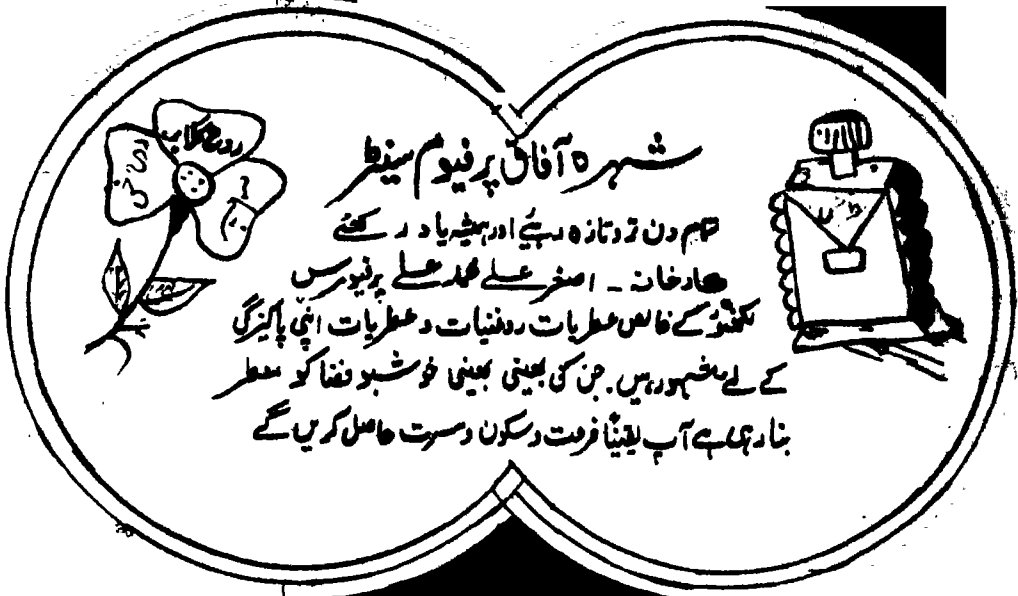 شہرہ آفاق پرفیوم سینٹر
تمام دن تروتازہ رہیئے اور ہمیشہ یاد رکھئے
کارخانہ - اصغر علی محمد علی پرفیومرس
لکھنؤ کے خالص عطریات روغنیات و عطریات اپنی پاکیزگی
کے لیے مشہور ہیں. جن کی بھینی بھینی خوشبو فضا کو معطر
بنا رہی ہے آپ یقیناً فرحت و سکون و مسرت حاصل کریں گے
روح گلاب
روح خس